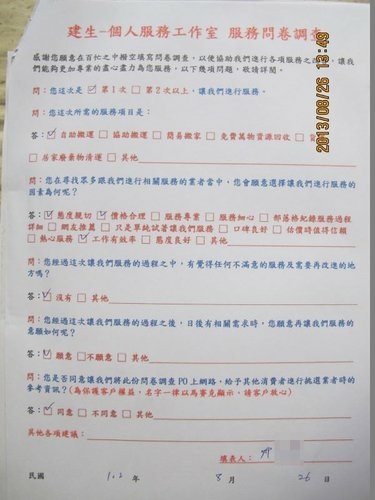 建生-個人服務工作室 服務問卷調查
感謝您願意在百忙之中撥空填寫問卷調查，以便協助我們進行各項服務之 讓我
們能夠更加專業的盡心盡力為您服務，以下幾項問題，敬請詳閱。
2013/08/26 13:49
問：您這次是 ☑ 第1次 □ 第2次以上，讓我們進行服務。
問：您這次所需的服務項目是：
答：☑ 自助搬運 □ 協助搬運 □ 簡易搬家 □ 免費萬物資源回收 □
□ 居家廢棄物清運 □ 其他
問：您在尋找眾多跟我們進行相關服務的業者當中，您會願意選擇讓我們進行服務的
因素為何呢？
答：☑ 態度親切 ☑ 價格合理 □ 服務專業 □ 服務細心 □ 部落格紀錄服務過程
詳細 □ 網友推薦 □ 只是單純試著讓我們服務 □ 口碑良好 □ 估價時值得信賴
□ 熱心服務 ☑ 工作有效率 □ 態度良好 □ 其他
問：您經過這次讓我們服務的過程之中，有覺得任何不滿意的服務及需要再改進的地
方嗎？
答：☑ 沒有 □ 其他
問：您經過這次讓我們服務的過程之後，日後有相關需求時，您願意再讓我們服務的
意願如何呢？
答：☑ 願意 □ 不願意 □ 其他
問：您是否同意讓我們將此份問卷調查PO上網路，給予其他消費者進行挑選業者時的
參考資訊？(為保護客戶權益，名字一律以馬賽克顯示，請客戶放心)
答：☑ 同意 □ 不同意 □ 其他
其他各項建議：
填表人：
民國 102 年 8 月 26 日